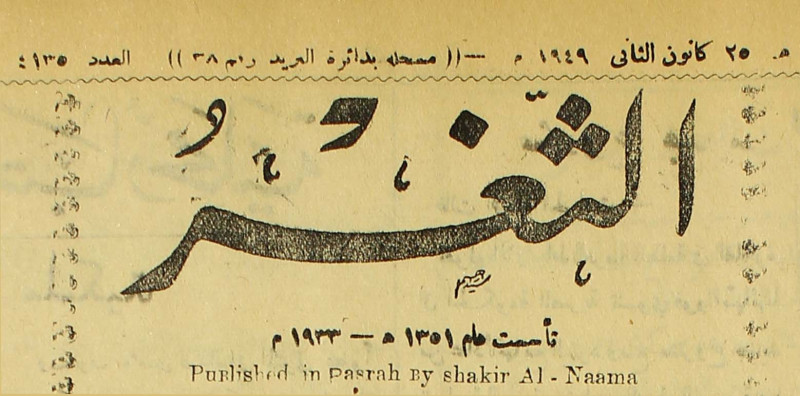 هـ ٢٥ كانون الثاني ١٩٤٩ م —(( مسجله بدائرة البريد رقم ٣٨ )) العدد ٤١٣٥
الثَّغْر
تأسست عام ١٣٥١ ه — ١٩٣٣ م
Published in Basrah By shakir Al - Naama